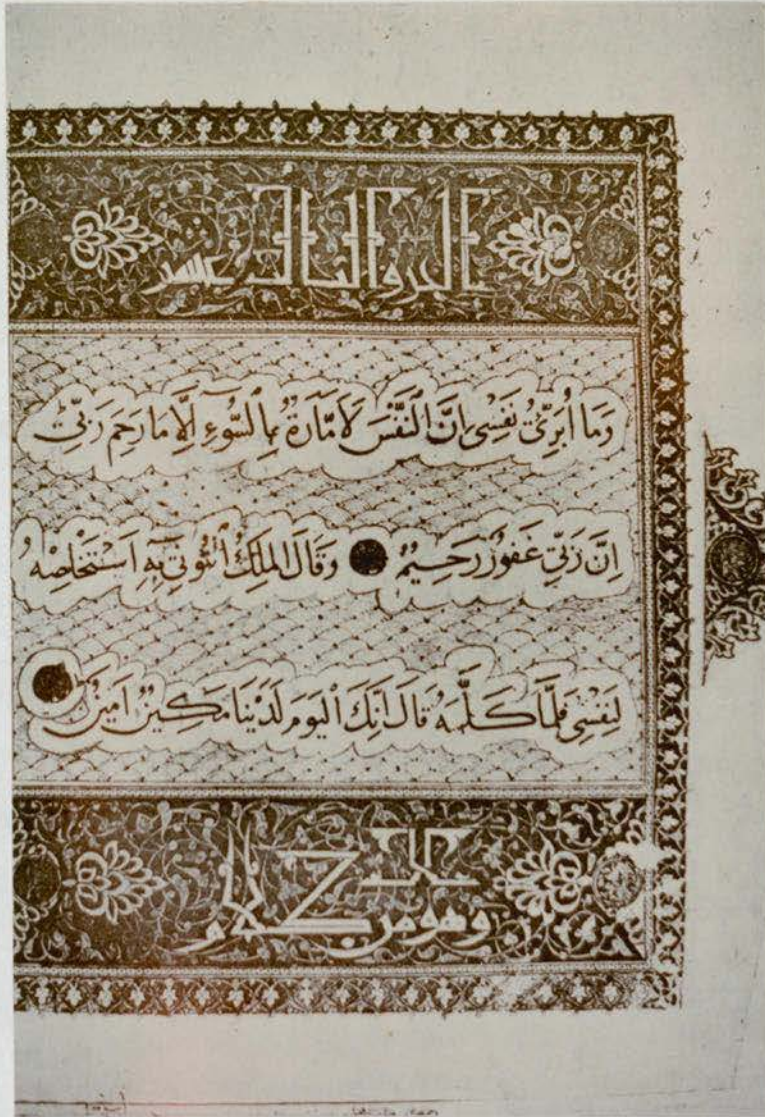 الجزو الثالث عشر
وَمَا أُبَرِّئُ نَفْسِى إِنَّ النَّفْسَ لَأَمَّارَةٌ بِالسُّوءِ إِلَّا مَا رَحِمَ رَبِّىٓ
إِنَّ رَبِّى غَفُورٌ رَحِيمٌ وَقَالَ الْمَلِكُ ائْتُونِى بِهِٓ أَسْتَخْلِصْهُ
لِنَفْسِى فَلَمَّا كَلَّمَهُ قَالَ إِنَّكَ الْيَوْمَ لَدَيْنَا مَكِينٌ أَمِينٌ
وهو من كلام